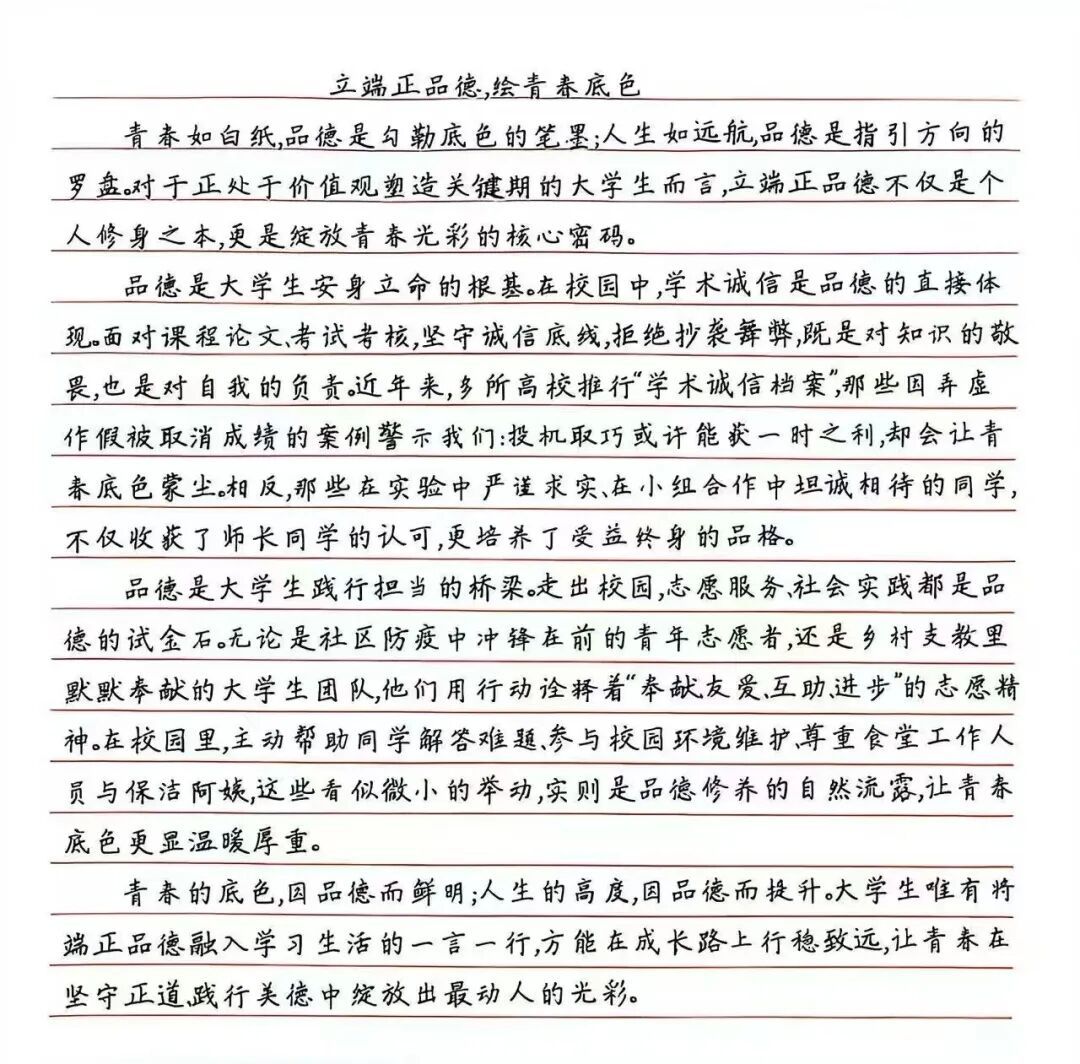 立端正品德,绘青春底色
青春如白纸,品德是勾勒底色的笔墨;人生如远航,品德是指引方向的
罗盘。对于正处于价值观塑造关键期的大学生而言,立端正品德不仅是个
人修身之本,更是绽放青春光彩的核心密码。
品德是大学生安身立命的根基。在校园中,学术诚信是品德的直接体
现。面对课程论文、考试考核,坚守诚信底线,拒绝抄袭舞弊,既是对知识的敬
畏,也是对自我的负责。近年来,多所高校推行“学术诚信档案”,那些因弄虚
作假被取消成绩的案例警示我们:投机取巧或许能获一时之利,却会让青
春底色蒙尘。相反,那些在实验中严谨求实、在小组合作中坦诚相待的同学,
不仅收获了师长同学的认可,更培养了受益终身的品格。
品德是大学生践行担当的桥梁。走出校园,志愿服务、社会实践都是品
德的试金石。无论是社区防疫中冲锋在前的青年志愿者,还是乡村支教里
默默奉献的大学生团队,他们用行动诠释着“奉献、友爱、互助、进步”的志愿精
神。在校园里,主动帮助同学解答难题、参与校园环境维护、尊重食堂工作人
员与保洁阿姨,这些看似微小的举动,实则是品德修养的自然流露,让青春
底色更显温暖厚重。
青春的底色,因品德而鲜明;人生的高度,因品德而提升。大学生唯有将
端正品德融入学习生活的一言一行,方能在成长路上行稳致远,让青春在
坚守正道、践行美德中绽放出最动人的光彩。